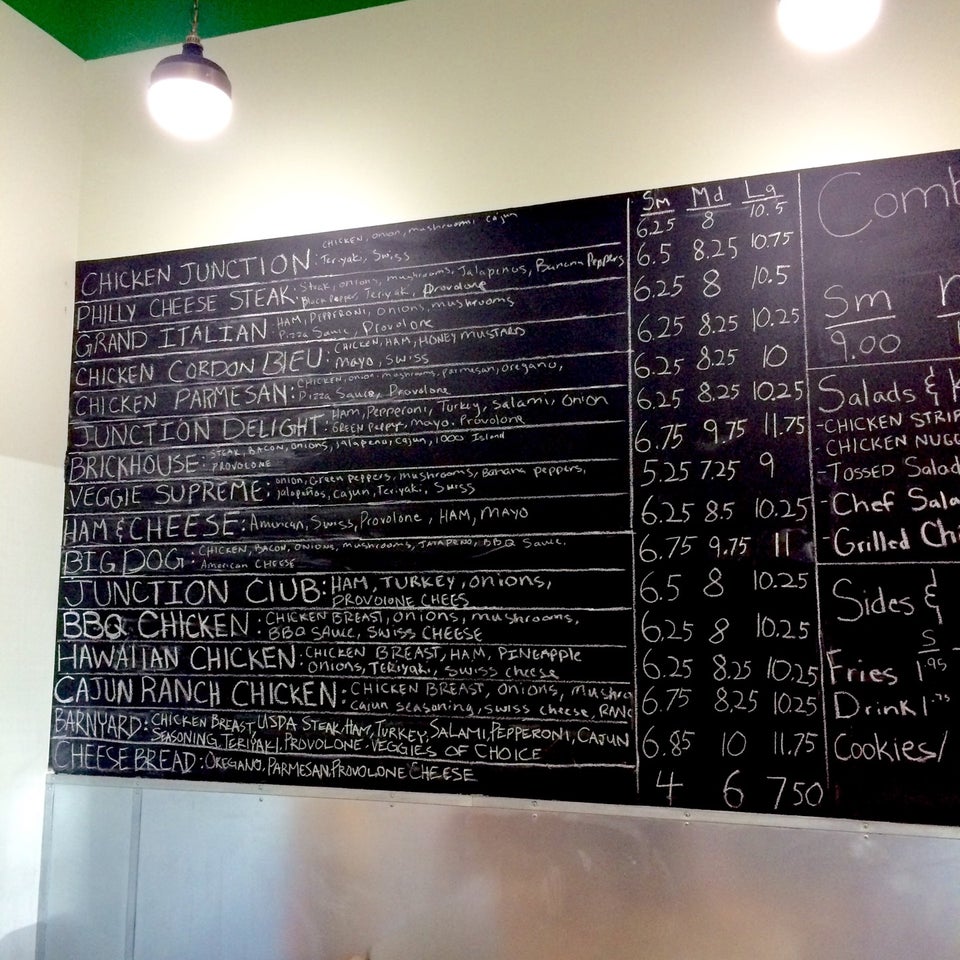 Sm Md Lg
CHICKEN JUNCTION: CHICKEN, onion, mushrooms, cajun 6.25 8 10.5
Teriyaki, Swiss
PHILLY CHEESE STEAK: Steak, onions, mushrooms, Jalapenos, Banana Peppers 6.5 8.25 10.75
Black Pepper, Teriyaki, Provolone
GRAND ITALIAN: HAM, PEPPERONI, onions, mushrooms 6.25 8 10.5
Pizza Sauce, Provolone
CHICKEN CORDON BLEU: CHICKEN, HAM, HONEY MUSTARD 6.25 8.25 10.25
Mayo, Swiss
CHICKEN PARMESAN: CHICKEN, onion, mushrooms, parmesan, oregano, 6.25 8.25 10
Pizza Sauce, Provolone
JUNCTION DELIGHT: Ham, Pepperoni, Turkey, Salami, Onion 6.25 8.25 10.25
GREEN Pepper, mayo, Provolone
BRICKHOUSE: STEAK, BACON, onions, jalapeno, cajun, 1000 Island 6.75 9.75 11.75
PROVOLONE
VEGGIE SUPREME: onion, Green peppers, mushrooms, Banana peppers, 5.25 7.25 9
jalapeños, cajun, Teriyaki, Swiss
HAM & CHEESE: American, Swiss, Provolone, HAM, MAYO 6.25 8.5 10.25
BIG DOG: CHICKEN, BACON, ONIONS, mushrooms, JALAPENO, BBQ Sauce, 6.75 9.75 11
American CHEESE
JUNCTION CLUB: HAM, TURKEY, onions, 6.5 8 10.25
PROVOLONE CHEES
BBQ CHICKEN: CHICKEN BREAST, onions, mushrooms, 6.25 8 10.25
BBQ SAUCE, SWISS CHEESE
HAWAIIAN CHICKEN: CHICKEN BREAST, HAM, PINEAPPLE 6.25 8.25 10.25
onions, TERIYAKI, swiss cheese
CAJUN RANCH CHICKEN: CHICKEN BREAST, onions, mushro 6.75 8.25 10.25
cajun seasoning, swiss cheese, RANC
BARNYARD: CHICKEN BREAST, USDA STEAK, HAM, TURKEY, SALAMI, PEPPERONI, CAJUN 6.85 10 11.75
SEASONING, TERIYAKI, PROVOLONE. VEGGIES OF CHOICE
CHEESE BREAD: OREGANO, PARMESAN, PROVOLONE CHEESE 4 6 750
Comb
Sm
9.00
Salads & K
-CHICKEN STRIP
-CHICKEN NUGG
-TOSSED Salad
-Chef Sala
-Grilled Chi
Sides &
S
Fries 1.95
Drink 1.75
Cookies/